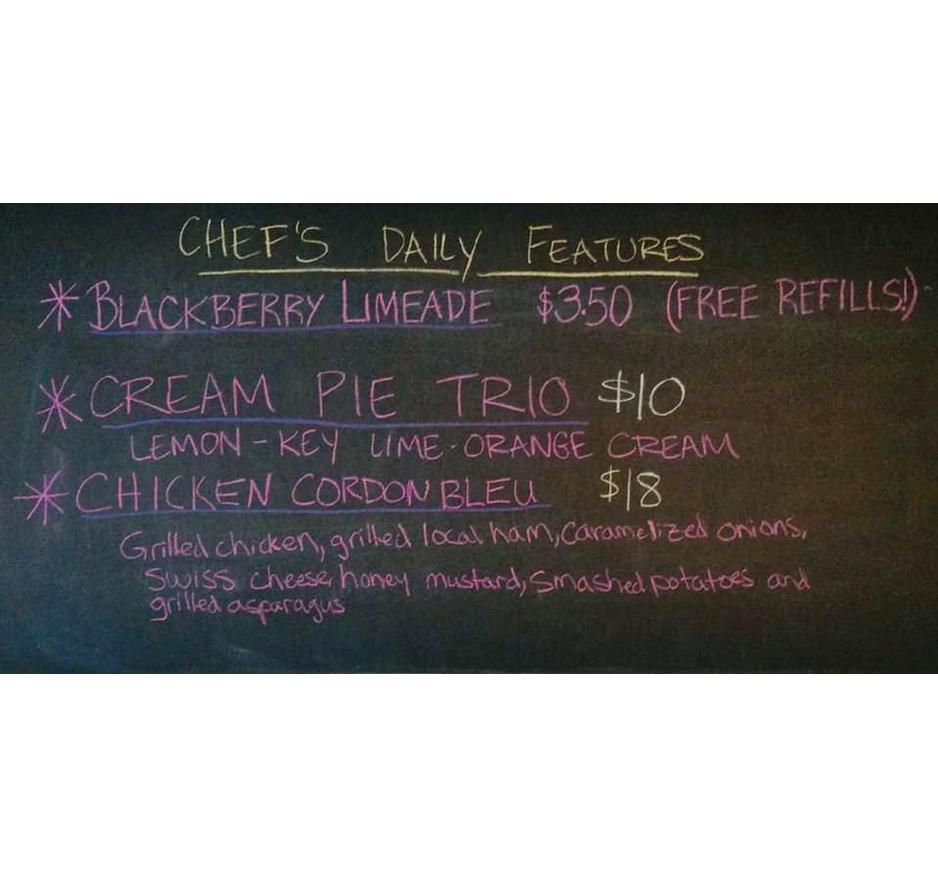 CHEF'S DAILY FEATURES
* BLACKBERRY LIMEADE $3.50 (FREE REFILLS!)
* CREAM PIE TRIO $10
LEMON - KEY LIME - ORANGE CREAM
* CHICKEN CORDON BLEU $18
Grilled chicken, grilled local ham, caramelized onions,
Swiss cheese, honey mustard, Smashed potatoes and
grilled asparagus